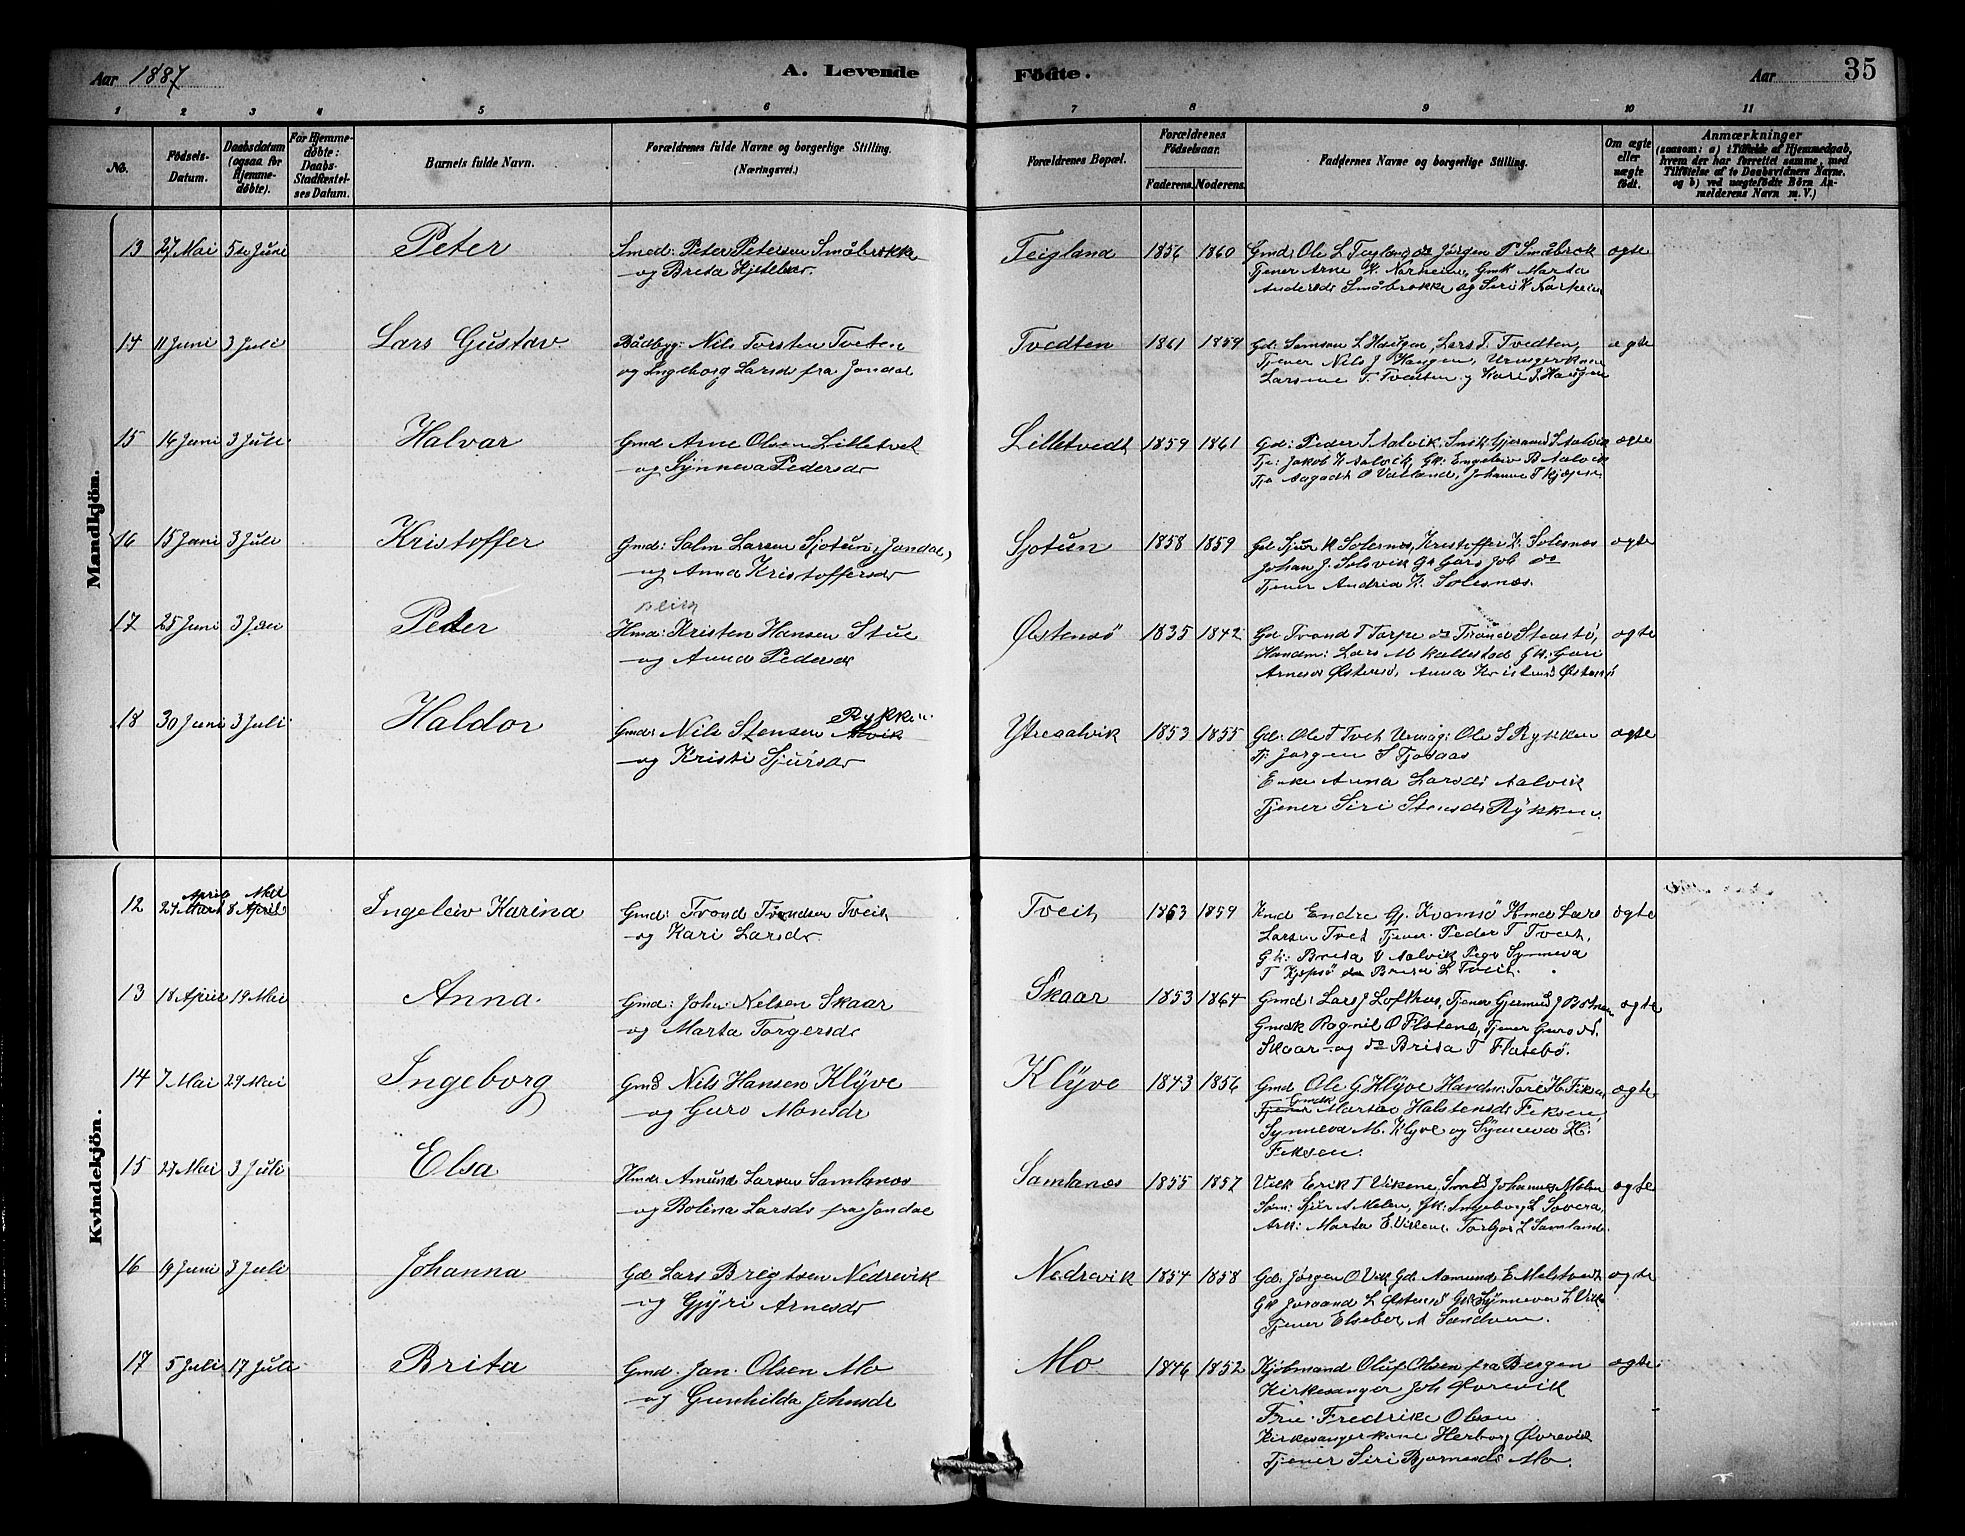 Aar 1887
A. Levende Födte.
Aar
35
1 2 3 4 5 6 7 8 9 10 11
No.
Födsels-Datum.
Daabsdatum (ogsaa for Hjemme-döbte).
For Hjemme-döbte: Daabs-Stadfæstel-ses Datum.
Barnets fulde Navn.
Forældrenes fulde Navne og borgerlige Stilling. (Næringsvei.)
Forældrenes Bopæl.
Forældrenes Födselsaar.
Faderens. Moderens.
Faddernes Navne og borgerlige Stilling.
Om ægte eller uægte födt.
Anmærkninger
(saasom: a) i Tilfælde af Hjemmedaab, hvem der har forrettet samme, med Tilföielse af to Daabsvidners Navne. og b) ved uægtefödte Börn An-melderens Navn m. V.)
Mandkjön.
13 27 Mai 5te Juni Peter Smed: Peter Petersen Småbrekke Teigland 1856 1860 Gmd: Ole L Teigland do Jørgen P Småbrek ægte
og Brita Tjener Arne K. Norheim, Gmk Marta
Andersdr Småbrekke og Siri K Norheim
14 11 Juni 3 Juli Lars Gustav Bådbyg: Nils Torsten Tveten Tvedten 1861 1859 Gd: Samson L Haugen, Lars T. Tvedten, ægte
og Ingeborg Larsd fra Jondal Tjener Nils J Haugen,
Larsine T. Tvedten og Kari J. Haugen
15 14 Juni 3 Juli Halvar Gmd Arne Olsen Lilletvet Lilletvedt 1859 1861 Gd: Peder S Aalvik: Snik Gjermund S Aalvik ægte
og Synneva Pedersdr Tje: Jakob K Aalvik, Gk: Engeleiv B Aalvik
Tje Aagadt O Vatland, Johanna T
16 15 Juni 3 Juli Kristoffer Gmd: Salm Larsen Sjotun, Jondal, Sjotun 1858 1859 Gd Sjur K Solesnes, Kristoffer K: Solesnæs ægte
og Anna Kristoffersdr Johan J: Solsvik Gk Guro Joh do
Tjener Andria K: Solesnæs.
17 25 Juni 3 Juli Peder Hmd: Kristen Hansen Stue Østensø 1835 1842 Gd: Trond T Torpe do Trond Steastø, ægte
og Anna Pedersdr Handm: Lars M Kallestad Gk: Guri
Arnesdr Østensø, Anna Kristensd Østensø
18 30 Juni 3 Juli Haldor Gmd: Nils Stensen Rykken Ytreaalvik 1853 1855 Gd: Ole T Tveit Urmag: Ole S Rykken ægte
og Kristi Sjursdr Tj: Jørgen S
Enke Anna Larsdr Aalvik
Tjener Siri Stensdr Rykken.
Kvindekjön.
12 24 April 8 Mai Ingeleiv Karina Gmd: Trond Trondsen Tveit Tveit 1853 1859 Kmd Endre Gj. Kvamsø Hmd Lars ægte
og Kari Larsdr. Larsen Tvet Tjener Peder T Tveit,
Gk: Brita V Aalvik Pige Synneva
T Kjepsø do Brita L Tveit.
13 18 April 19 Mai Anna Gmd: John Nelsen Skaar Skaar 1853 1864 Gmd: Lars J Lofthus, Tjener Gjermund J Botnen ægte
og Marta Torgersdr Gmdk Ragnil O Flatene, Tjener Guro N.
Skaar og do Brita T Flatebø.
14 7 Mai 29 Mai Ingeborg Gmd Nils Hansen Klyve Klyve 1843 1856 Gmd Ole G Klyve Hardr: Tore H. Fiksen ægte
og Guro Monsdr Gmdk Martao Halstensdr Feksen
Synneva M. Klyve og Synneva H:
Feksen.
15 27 Mai 3 Juli Elsa Hmd: Amund Larsen Samlanæs Samlanæs 1855 1857 Vik Erik T Vikene, Smed Johannes Molen ægte
og Bolina Larsds fra Jondal Søm: Sjur A Melen, Gk: Ingeborg L Sovera,
Ark: Marta E. Vikene, Torbjør L Samland.
16 19 Juni 3 Juli Johanna Gd Lars Brigtsen Nedrevik Nedrevik 1854 1858 Gd: Jørgen O Vik Gd: Aamund E Melstveit ægte
og Gjyri Arnesdr Gk Josaand L Østensø Gk Synneva L Vik
Tjener Elseber A Sandven.
17 5 Juli 17 Juli Brita Gmd. Jan Olsen Mo Mo 1846 1852 Kjøbmand Oluf Olsen fra Bergen ægte
og Gunhilda Johnsdr Kirkesanger Joh Øvrevik
Frue Fredrike Olsen
Kirkesangerkone Herborg Øvrevik
Tjener Siri Bjørnesdr Mo.